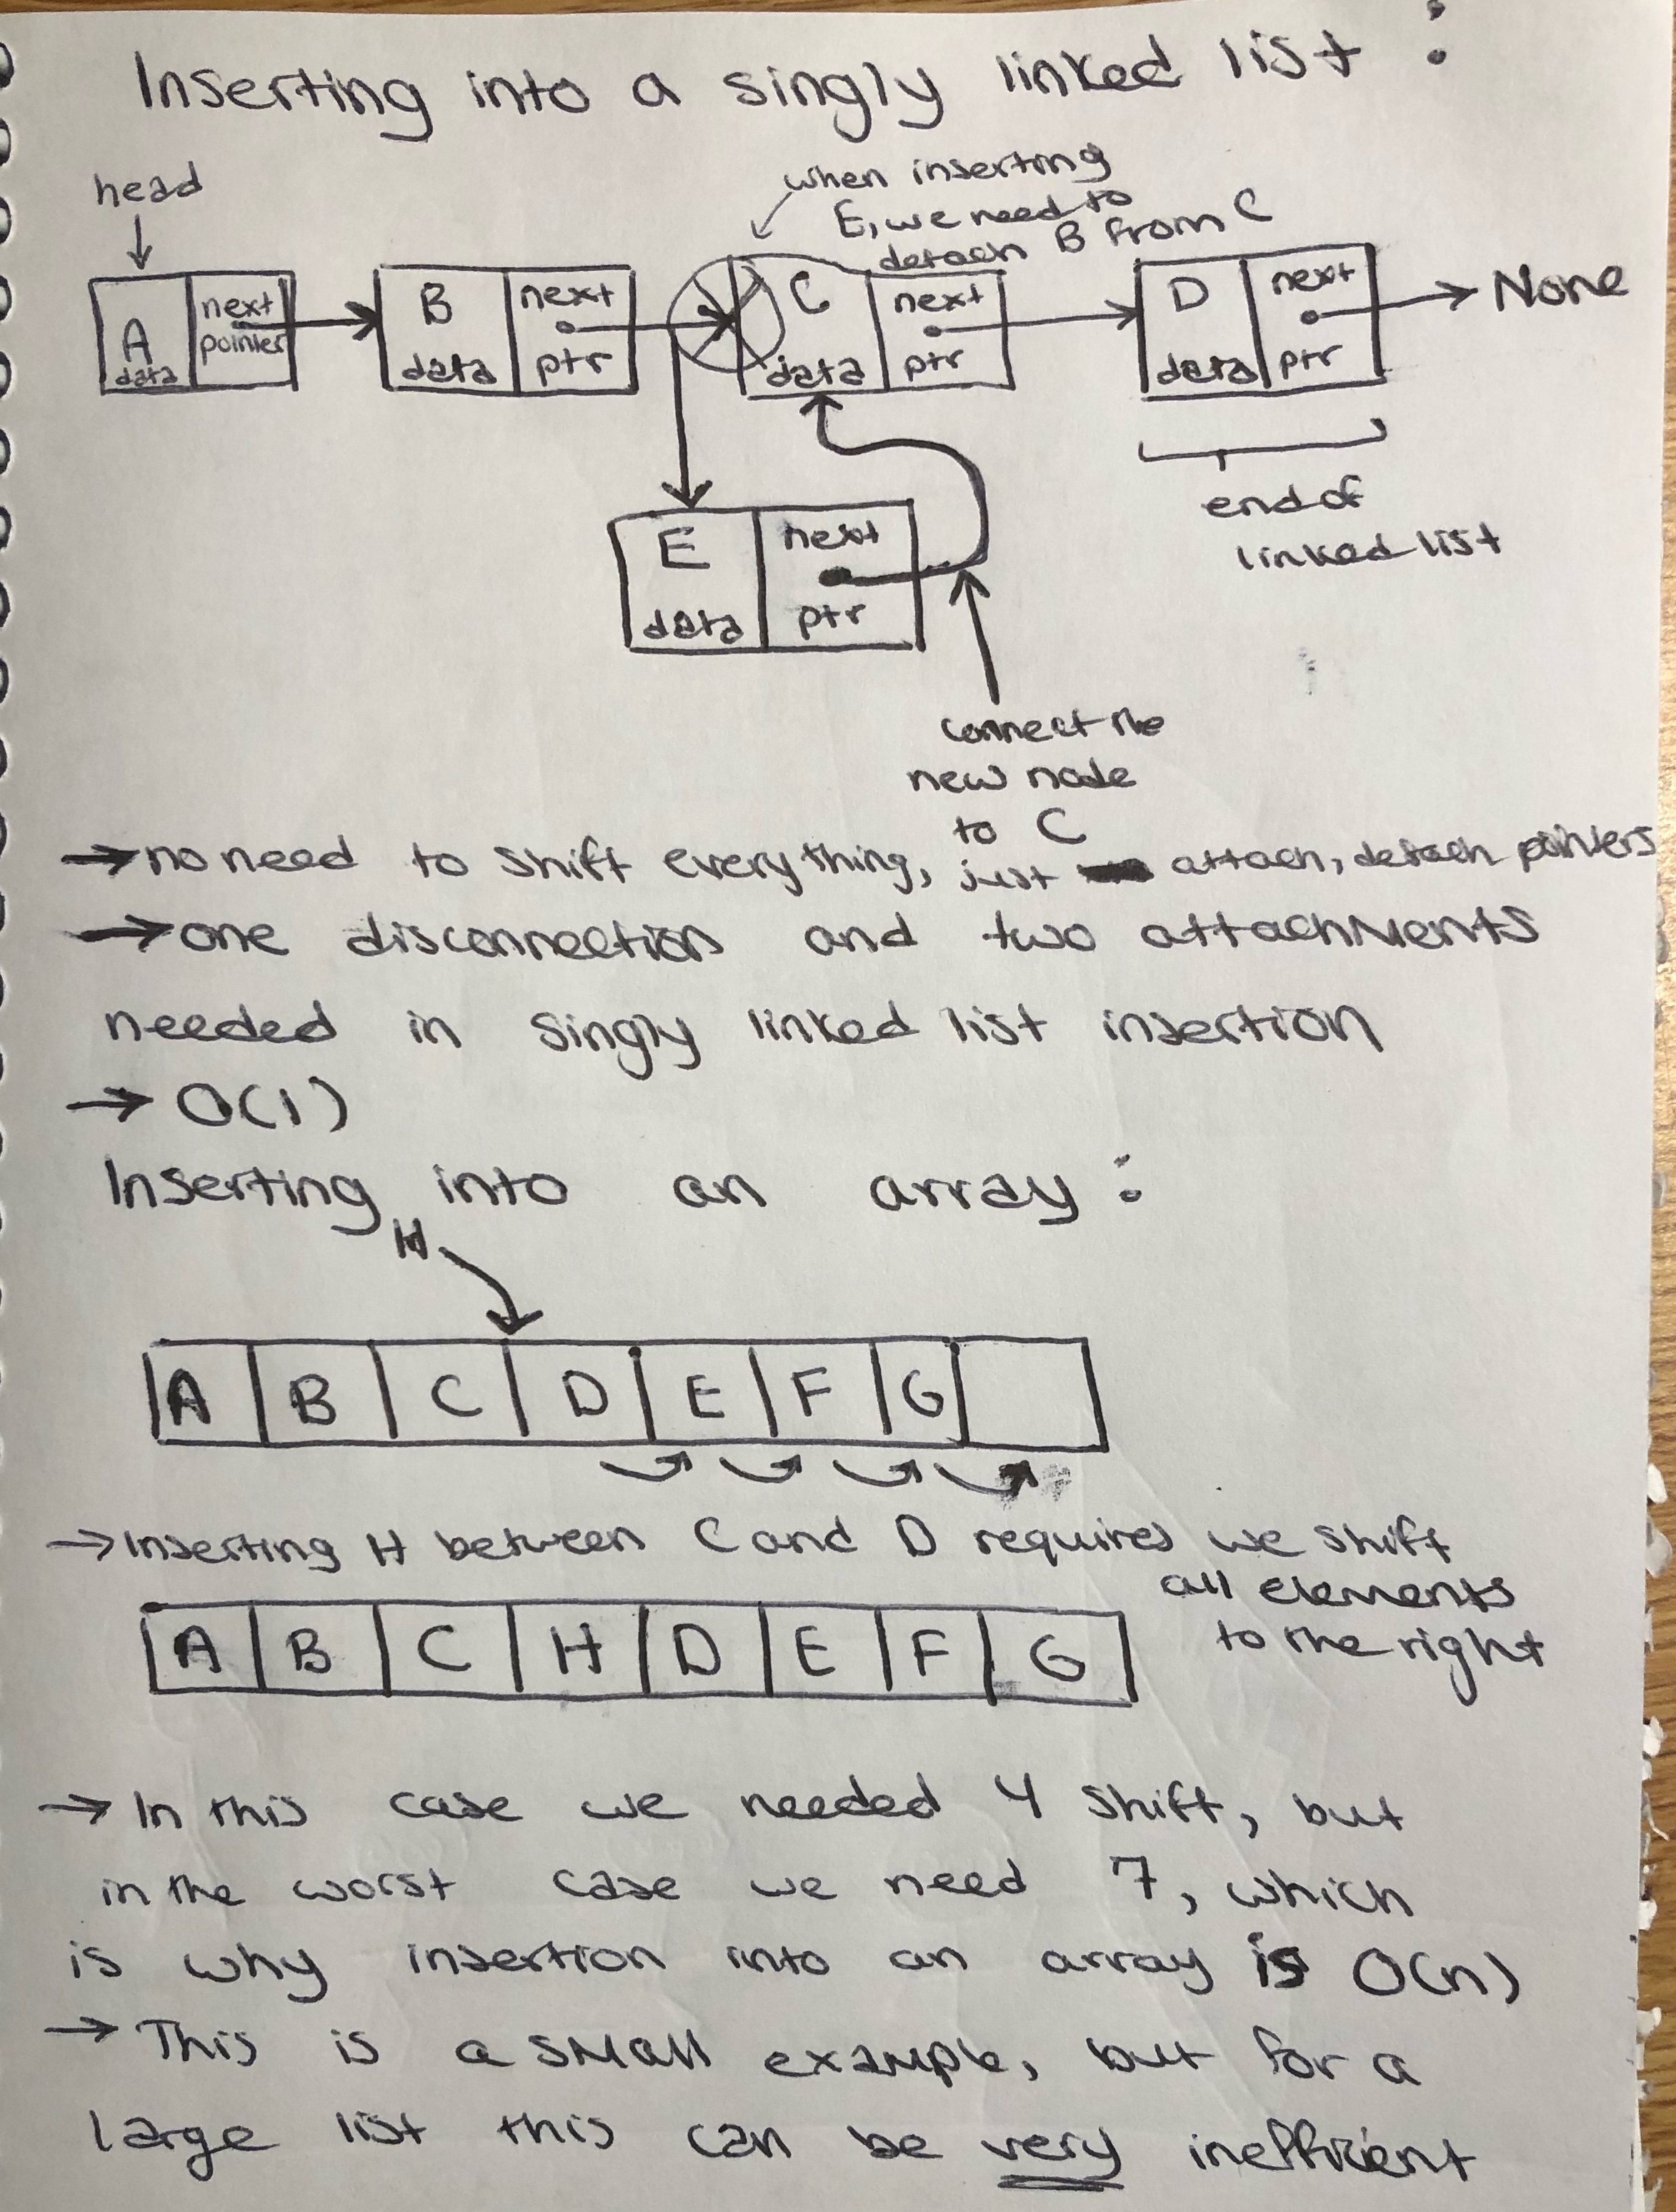 Inserting into a singly linked list :
head
when inserting
E, we need to
detach B from C
A
data
next
pointer
B
data
next
ptr
C
data
next
ptr
D
data
next
ptr
None
E
data
next
ptr
end of
linked list
connect the
new node
to C
→ no need to shift everything, just attach, detach pointers
→ one disconnection and two attachments
needed in singly linked list insertion
→ O(1)
Inserting into an array :
H
A B C D E F G
→ Inserting H between C and D requires we shift
all elements
to the right
A B C H D E F G
→ In this case we needed 4 shift, but
in the worst case we need 7, which
is why insertion into an array is O(n)
→ This is a small example, but for a
large list this can be very inefficient